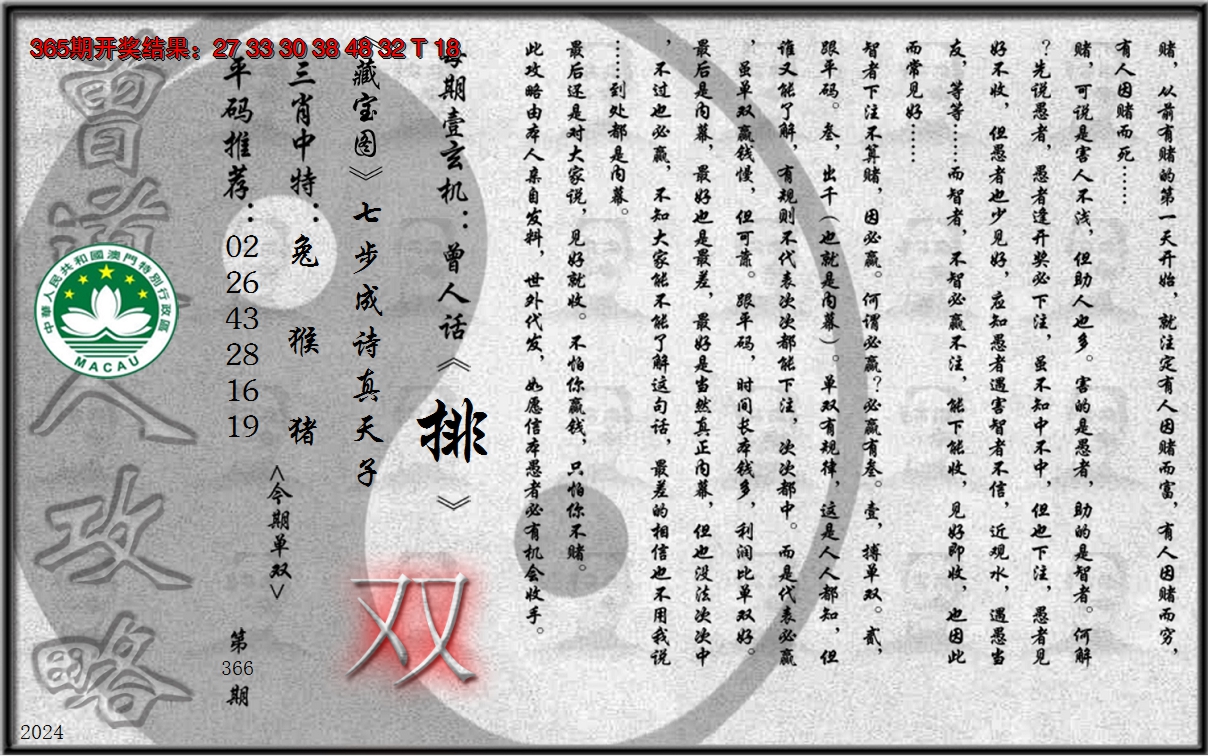 365期开奖结果：27 33 30 38 48 32 T 18
赌，从前有赌的第一天开始，就注定有人因赌而富，有人因赌而穷，
有人因赌而死……
赌，可说是害人不浅，但助人也多。害的是愚者，助的是智者。何解
？先说愚者，愚者逢开奖必下注，虽不知中不中，但也下注，愚者见
好不收，但愚者也少见好，应知愚者遇害智者不信，近观水，遇愚当
友，等等……而智者，不智必赢不注，能下能收，见好即收，也因此
而常见好……
智者下注不算赌，因必赢。何谓必赢？必赢有叁。壹，搏单双。贰，
跟平码。叁，出千（也就是内幕）。单双有规律，这是人人都知，但
谁又能了解，有规则不代表次次都能下注，次次都中。而是代表必赢
，虽单双赢钱慢，但可靠。跟平码，时间长本钱多，利润比单双好。
最后是内幕，最好也是最差，最好是当然真正内幕，但也没法次次中
，不过也必赢，不知大家能不能了解这句话，最差的相信也不用我说
……到处都是内幕。
最后还是对大家说，见好就收。不怕你赢钱，只怕你不赌。
此攻略由本人亲自发料，世外代发，如愿信本愚者必有机会收手。
每期壹玄机：曾人话《排》
《藏宝图》七步成诗真天子
双
三肖中特：兔 猴 猪
<今期单双>
平码推荐：
02
26
43
28
16
19
第
366
期
曾道人攻略
中華人民共和國澳門特別行政區
MACAU
2024